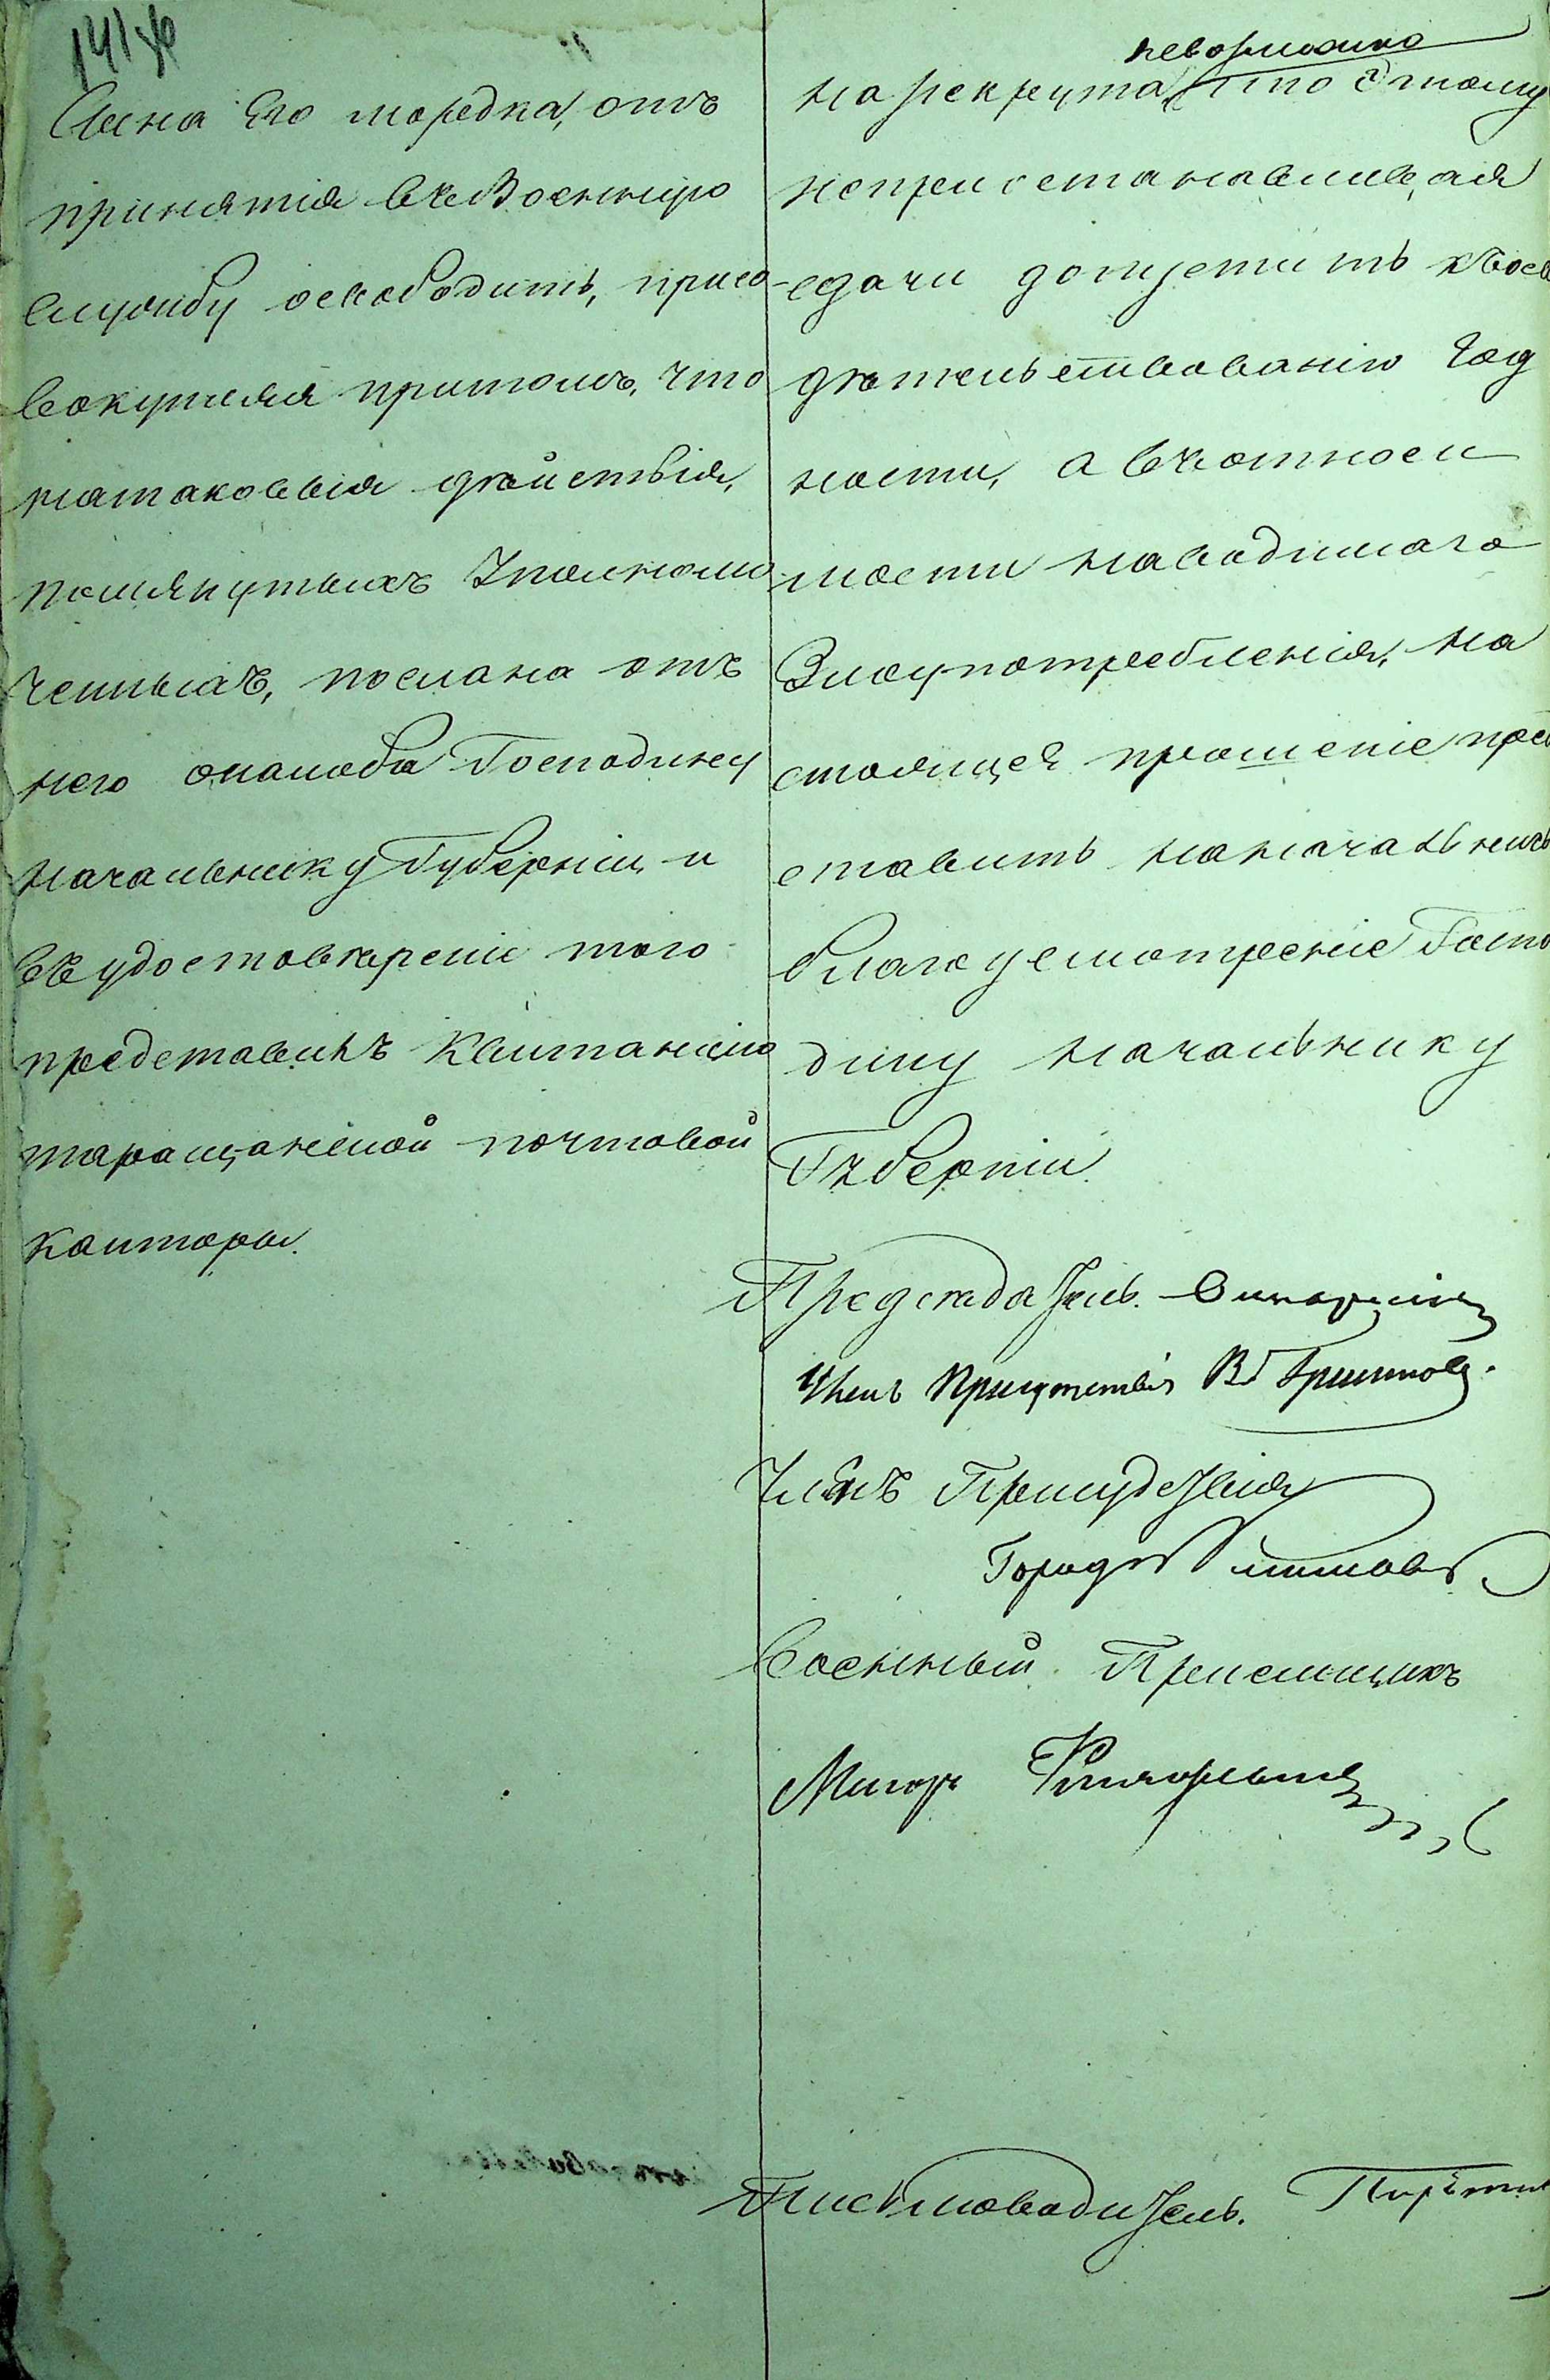 Сына Его мордка, отъ
принятія въ Военную
службу освободить, присо
вокупляя притомъ, что
натаковыя дѣйствія,
помянутыхъ Уполномо
ченныхъ, послана отъ
него жалоба Господину
Начальнику Губерніи, и
въ удостовѣреніе того
представилъ Квитанцію
таращанской почтовой
Конторы.
невозможно
на рекрута, то
непріостанавливая
сдачи допустить къ
дѣтельствованію год
ности, а вчотноси
мости наводимаго
Злоупотребленія, на
стоящее прошеніе пред
ставить на начальничь
благоусмотреніе Госпо
дину Начальнику
Губерніи.
Предсѣдатель.
Членъ Присутствія
Членъ Присудствія
Военный Пріемщикъ
Маіоръ
Письмоводитель.